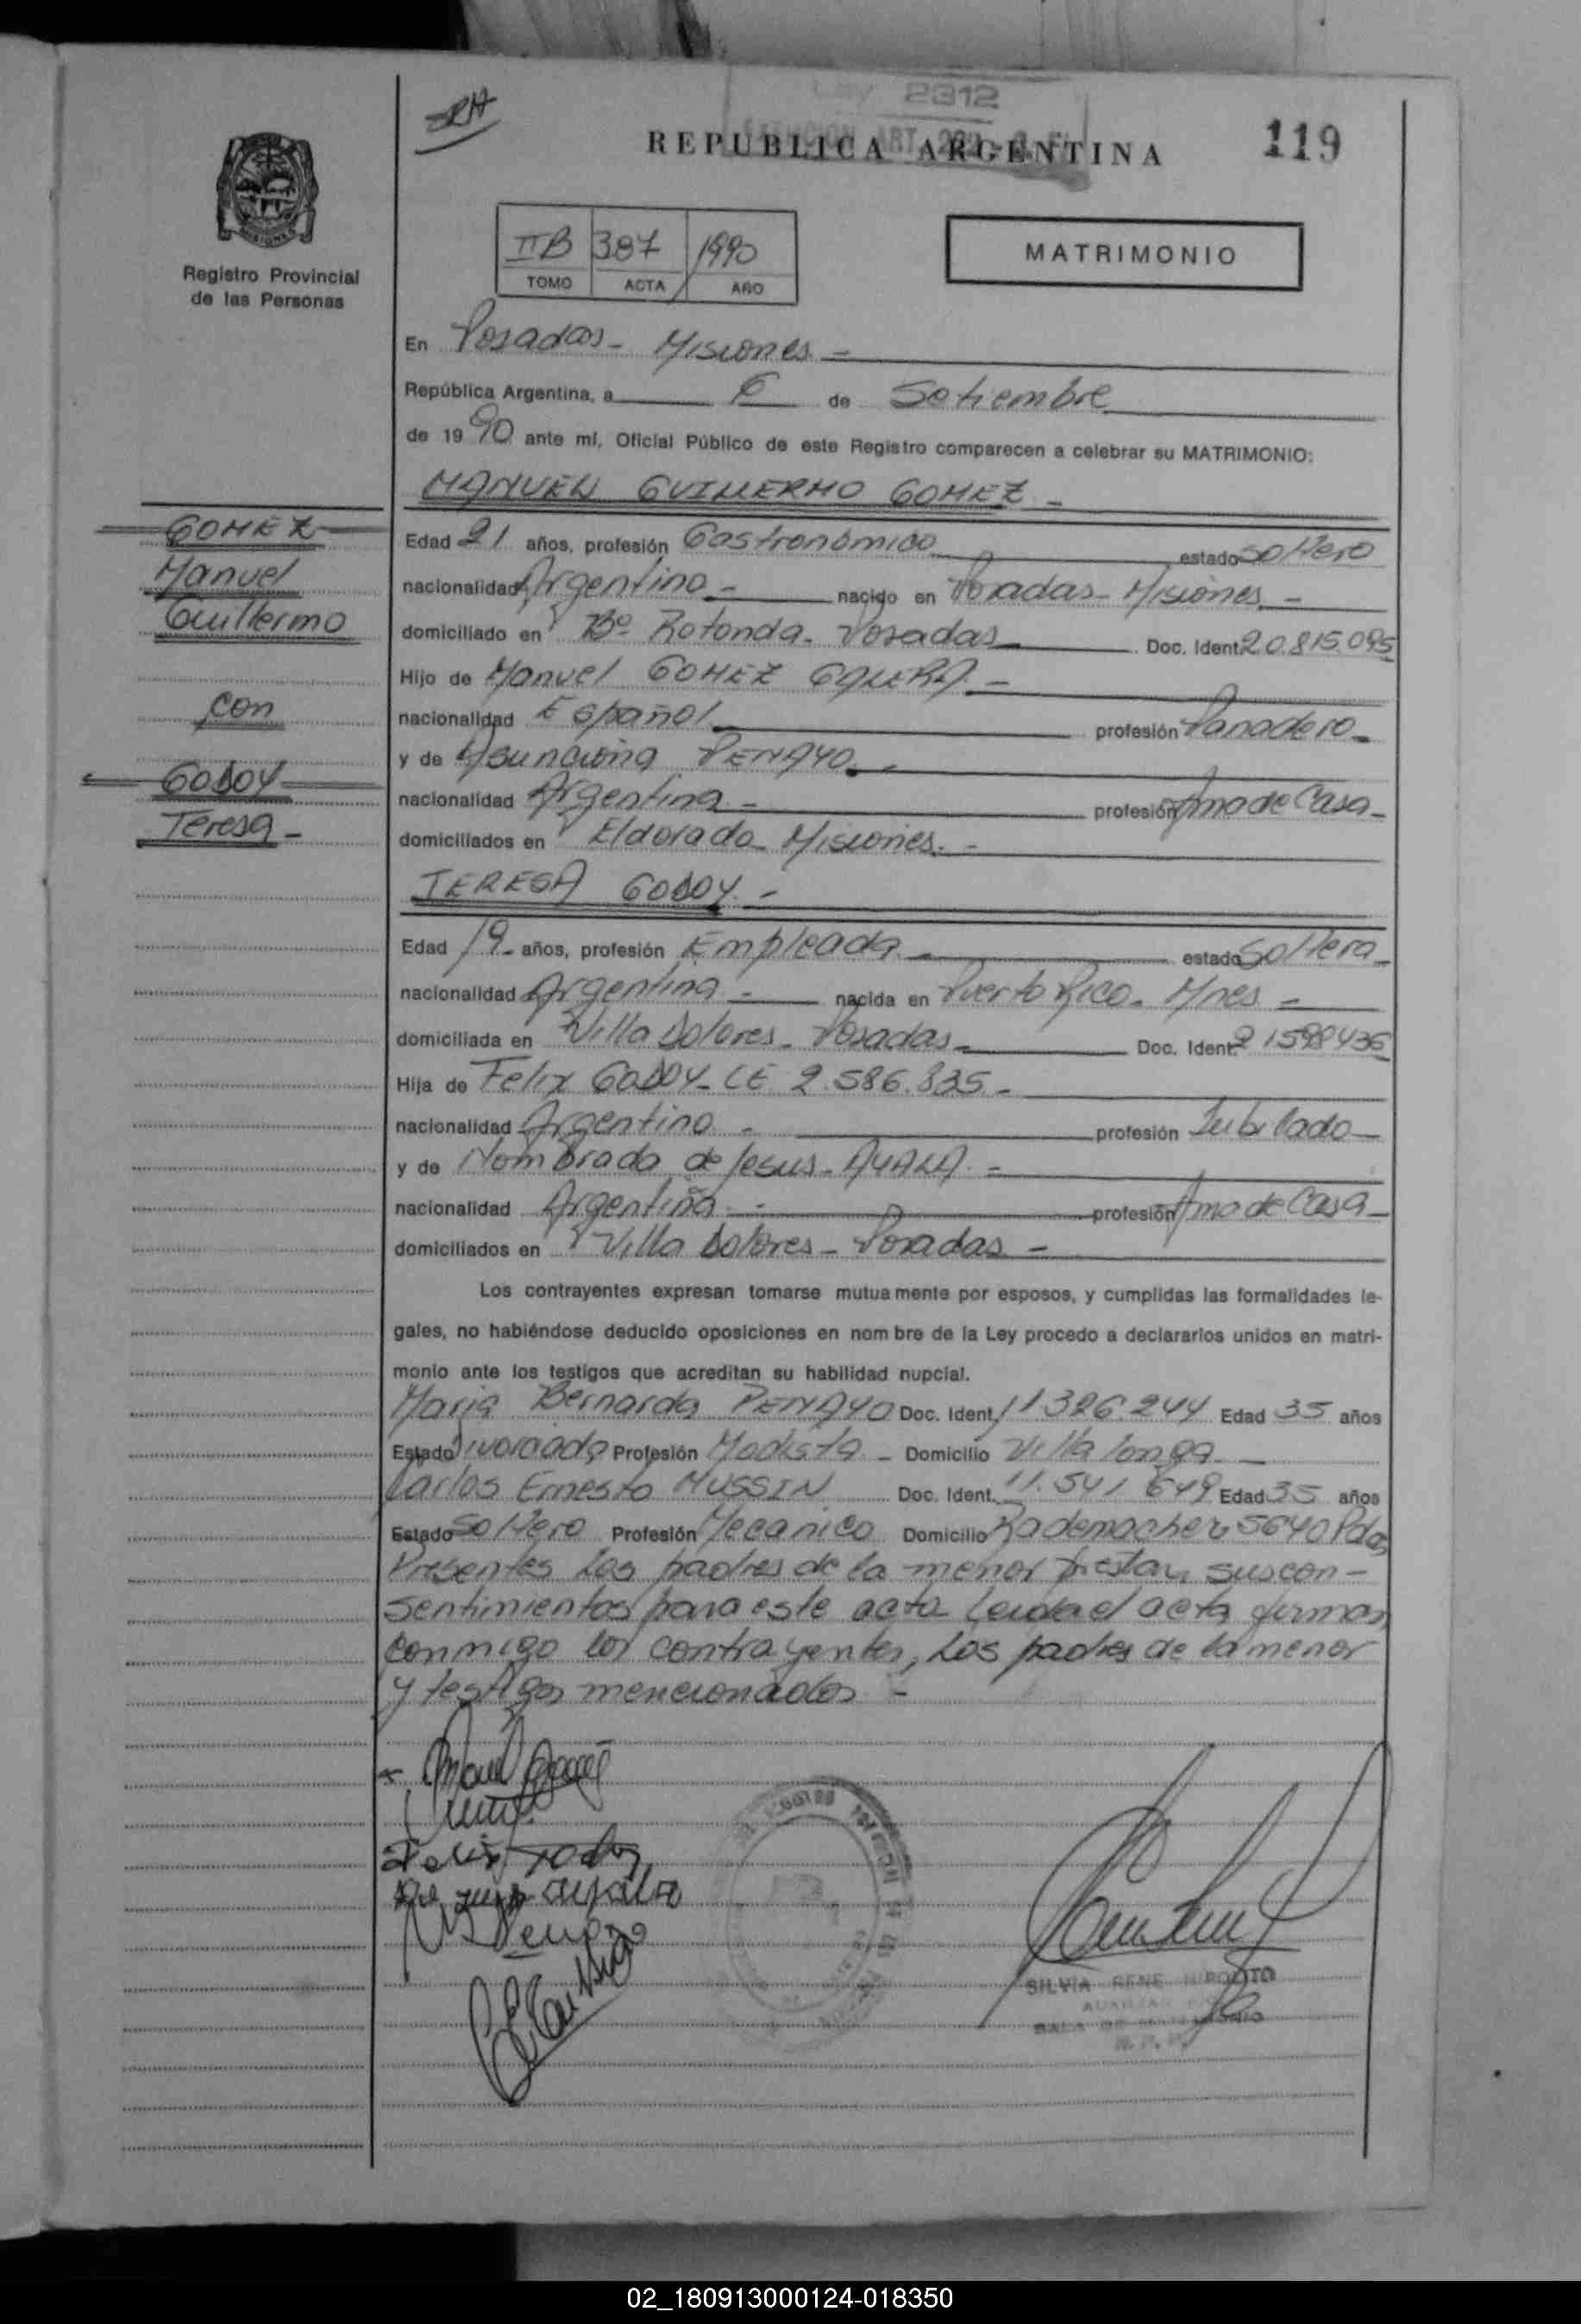 2312
ART.
REPUBLICA ARGENTINA
119
MISIONES
Registro Provincial
de las Personas
IIB 387 1990
TOMO ACTA AÑO
MATRIMONIO
En Posadas - Misiones -
República Argentina, a 6 de Setiembre
de 1990 ante mí, Oficial Público de este Registro comparecen a celebrar su MATRIMONIO:
MANUEL GUILLERMO GOMEZ -
GOMEZ
Manuel
Guillermo
con
GODOY
Teresa -
Edad 21 años, profesión Gastronómico estado soltero
nacionalidad Argentino - nacido en Posadas - Misiones -
domiciliado en Bº Rotonda - Posadas Doc. Ident. 20.815.095
Hijo de Manuel GOMEZ -
nacionalidad Español profesión Panadero -
y de Asunciona PENAYO -
nacionalidad Argentina - profesión Ama de Casa -
domiciliados en Eldorado Misiones. -
TERESA GODOY. -
Edad 19 - años, profesión Empleada - estado Soltera -
nacionalidad Argentina - nacida en Puerto Rico - Mnes -
domiciliada en Villa Dolores - Posadas - Doc. Ident. 21598436
Hija de Felix GODOY - LE 2.586.835 -
nacionalidad Argentino - profesión Jubilado -
y de Nombrada de Jesus - AYALA -
nacionalidad Argentina - profesión Ama de Casa -
domiciliados en Villa Dolores - Posadas -
Los contrayentes expresan tomarse mutuamente por esposos, y cumplidas las formalidades le-
gales, no habiéndose deducido oposiciones en nombre de la Ley procedo a declararlos unidos en matri-
monio ante los testigos que acreditan su habilidad nupcial.
Maria Bernarda PENAYO Doc. Ident. 11326.244 Edad 35 años
Estado Divorciada Profesión Modista - Domicilio Villa longa -
Carlos Ernesto MUSSIN Doc. Ident. 11.541 649 Edad 35 años
Estado Soltero Profesión Mecanico Domicilio Rademacher 5640 Pdas
Presentes los padres de la menor prestan sus con-
sentimientos para este acto Leida el acta firman
conmigo los contrayentes, los padres de la menor
y testigos mencionados -
SILVIA RENE HIPOLITO
AUXILIAR
SALA DE MATRIMONIO
02_180913000124-018350